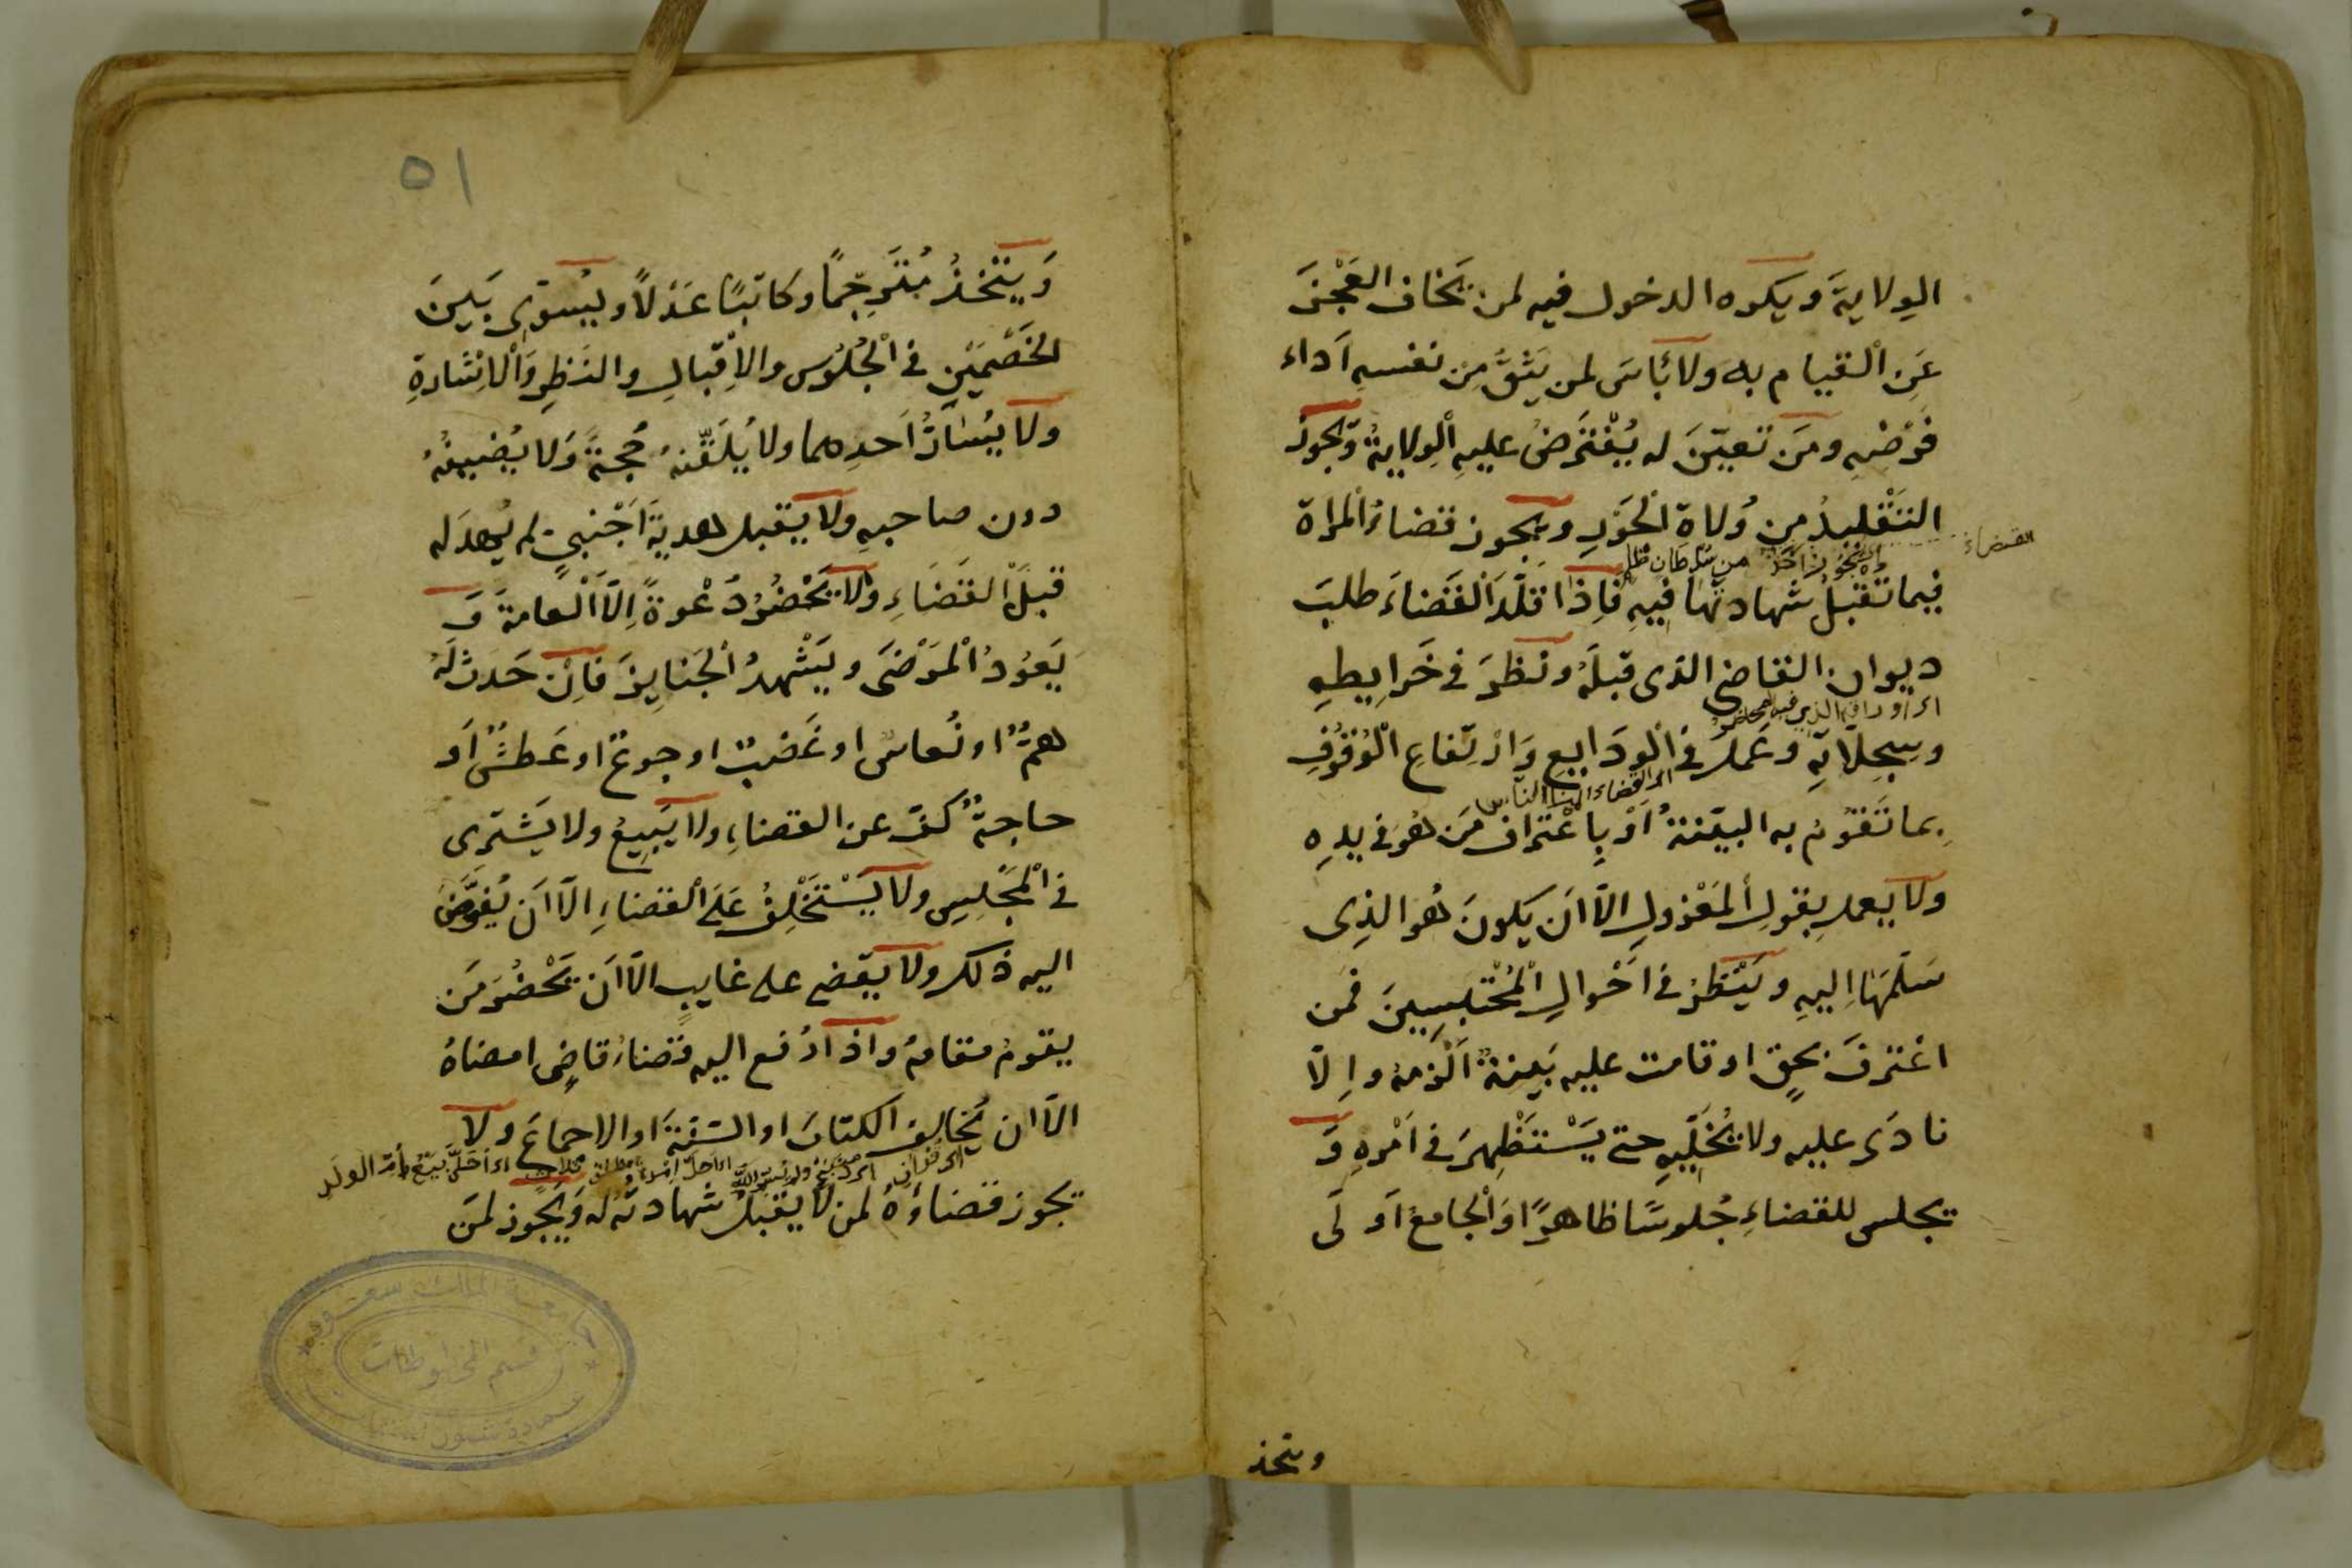 الوِلايةَ ويكره الدخول فيه لمن يَخاف العَجْزَ
عَنِ الْقيام به ولا بَأسَ لمن يَثِقُ مِن نفسِهِ اَداء
فَرْضِهِ ومَن تعيّنَ له يُفْتَرَضُ عليهِ الْوِلايةُ وَيجوزُ
التَقْليدُ من وُلاة الْجَوْرِ ويجوز قضاءُ المراة
القضاء
اى يجوز اخذ من سلطان ظالم
فيما تُقبلُ شهادتها فيهِ فاِذا قُلّدَ الْقَضاءَ طلبَ
ديوان القاضى الذى قبلَهُ ونظرَ فى خَرايِطِهِ
وسِجِلّاتِهِ وعَمِلَ فى الْوَدَايِعِ وَارْتِفاعِ الْوُقُوفِ
بما تَقُومُ به البيّنةُ اَوْ بِاعْتراف مَن هُوَ فى يدِهِ
ولا يعملِ بقولِ المَعْزولِ الّا اَن يكونَ هُو الذِى
سَلّمَهَا اِليهِ ويَنْظرُ فى اَحْوالِ الْمُحْتبسِينَ فمن
اعْترفَ بحقٍ او قامت عليه بَينةٌ اَلْزمهُ واِلّا
نادَى عليه ولا يُخَلِّيهِ حتى يَسْتَظْهِرَ فى اَمْرِهِ وَ
يجلس للقضاءِ جُلوسًا ظاهرًا وَالْجامعُ اَوْلَى
ويتخذ
٥١
وَيَتّخذُ مُتَرجِمًا وكاتبًا عَدْلًا ويُسوّى بَينَ
الخَصْمَيْنِ فى الْجُلُوْسِ والاِقْبالِ والنَظرِ وَالْاِشَارةِ
ولا يُسَارُّ اَحدهما ولا يُلَقّنهُ حُجةً وَلا يُضيفُهُ
دون صاحبِهِ ولا يَقبل هديةَ اَجْنبىٍ لم يُهدَ له
قبلَ الْقَضَاءِ ولا يَحْضُرُ دَعْوةً اِلّا الْعامةَ وَ
يَعُودُ الْمَرْضَى ويَشْهدُ الْجَنايِزَ فاِنْ حَدَثَ لَهُ
همٌّ او نُعاسٌ او غَضبٌ او جوعٌ او عَطشٌ اَو
حاجةٌ كفّ عن القضاءِ ولا يَبِيعُ ولا يَشترِى
فى الْمجْلِسِ ولا يَسْتَخْلِفُ عَلَى الْقضاءِ الّا اَن يُفوَّضَ
اليه ذلك ولا يقضِى على غايبٍ الّا اَن يَحْضُرَ مَن
يقومُ مقامهُ واذا رُفع اليهِ قضاءُ قاضٍ امضاهُ
الّا ان يُخالِف الكتابَ او السّنةَ او الاجماعَ ولا
يجوز قضاؤهُ لمن لا يقبلُ شهادتُه له وَيجوز لمَن
جامعة الملك سعود
قسم المخطوطات